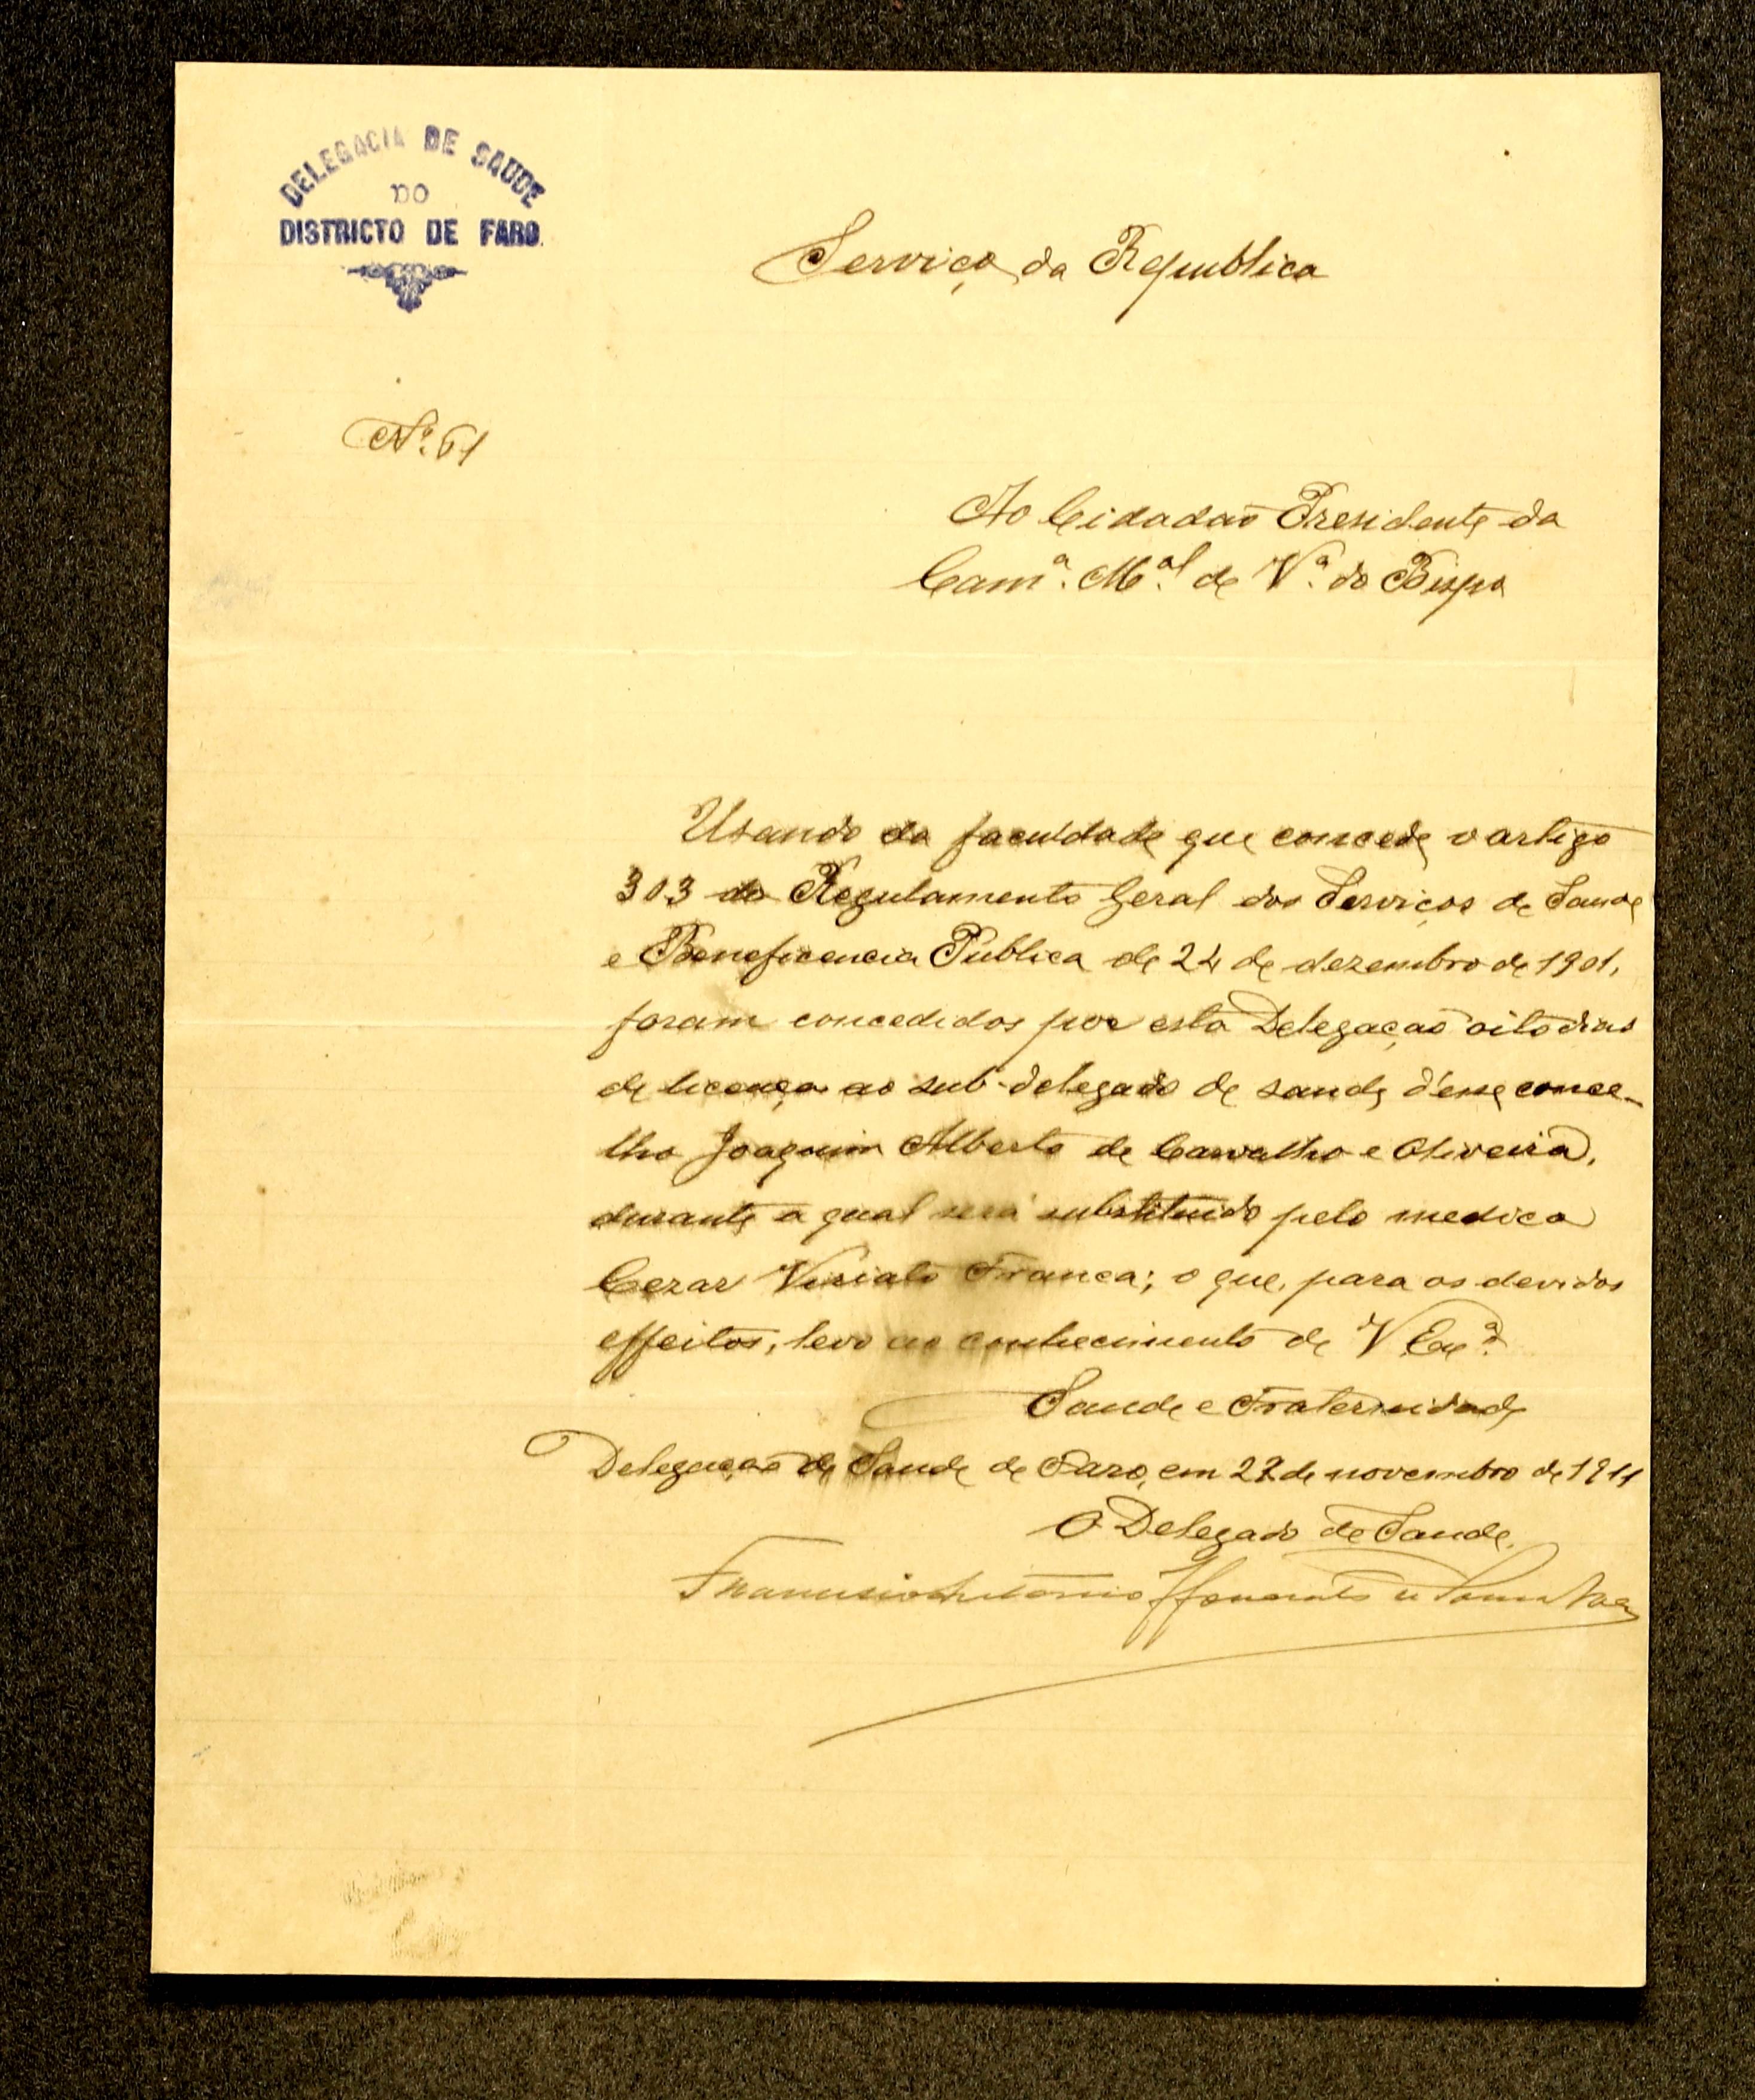 DELEGACIA DE SAUDE
DO
DISTRICTO DE FARO.
Serviço da Republica
Nº. 61
Ao Cidadão Presidente da
Camª. Mal. de Vª. do Bispo
Usando da faculdade que concede o artigo
303 do Regulamento Geral dos Serviços de Saude
e Beneficencia Publica de 24 de dezembro de 1901,
foram concedidos por esta Delegação oito dias
de licença ao sub-delegado de saude d'esse conce-
lho Joaquim Alberto de Carvalho e Oliveira,
durante a qual será substituido pelo medico
Cezar Viriato Franca; o que, para os devidos
effeitos, levo ao conhecimento de V. Exª.
Saude e Fraternidade
Delegação de Saude de Faro, em de novembro de 1911
O Delegado de Saude,
Francisco Antonio